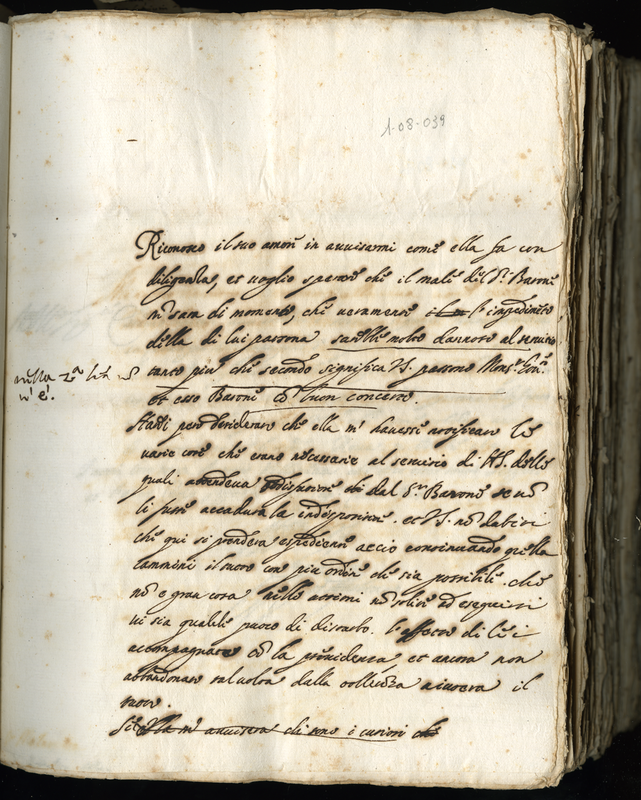 1-08-039
Riconosco il suo amore in avvisarmi come ella fa con
diligenza, et voglio sperare che il male del S.r Barone
non sara di momento, che veramente l'impedimento
della di lui persona sarebbe molto dannoso al servizio
tanto piu che secondo significa V.S. passano Mons.r
et esso Barone con buon concerto.
nella
n'è
però desiderare che ella m'havesse notificato le
varie cose che erano necessarie al servizio di delle
quali attendeva dal S.r Barone se non
li fusse accaduta la indisposizione. et V.S. non dubiti
che qui si prendera espediente accio continuando quella
cammini il tutto con piu ordine che sia possibile. che
non e gran cosa nelle attioni ad eseguirsi
vi sia qualche puoco di disturbo. di
accompagnare con la providenza et ancora non
abbandonare talvolta dalla il
tutto.
m'avvisera che sono i curiosi che